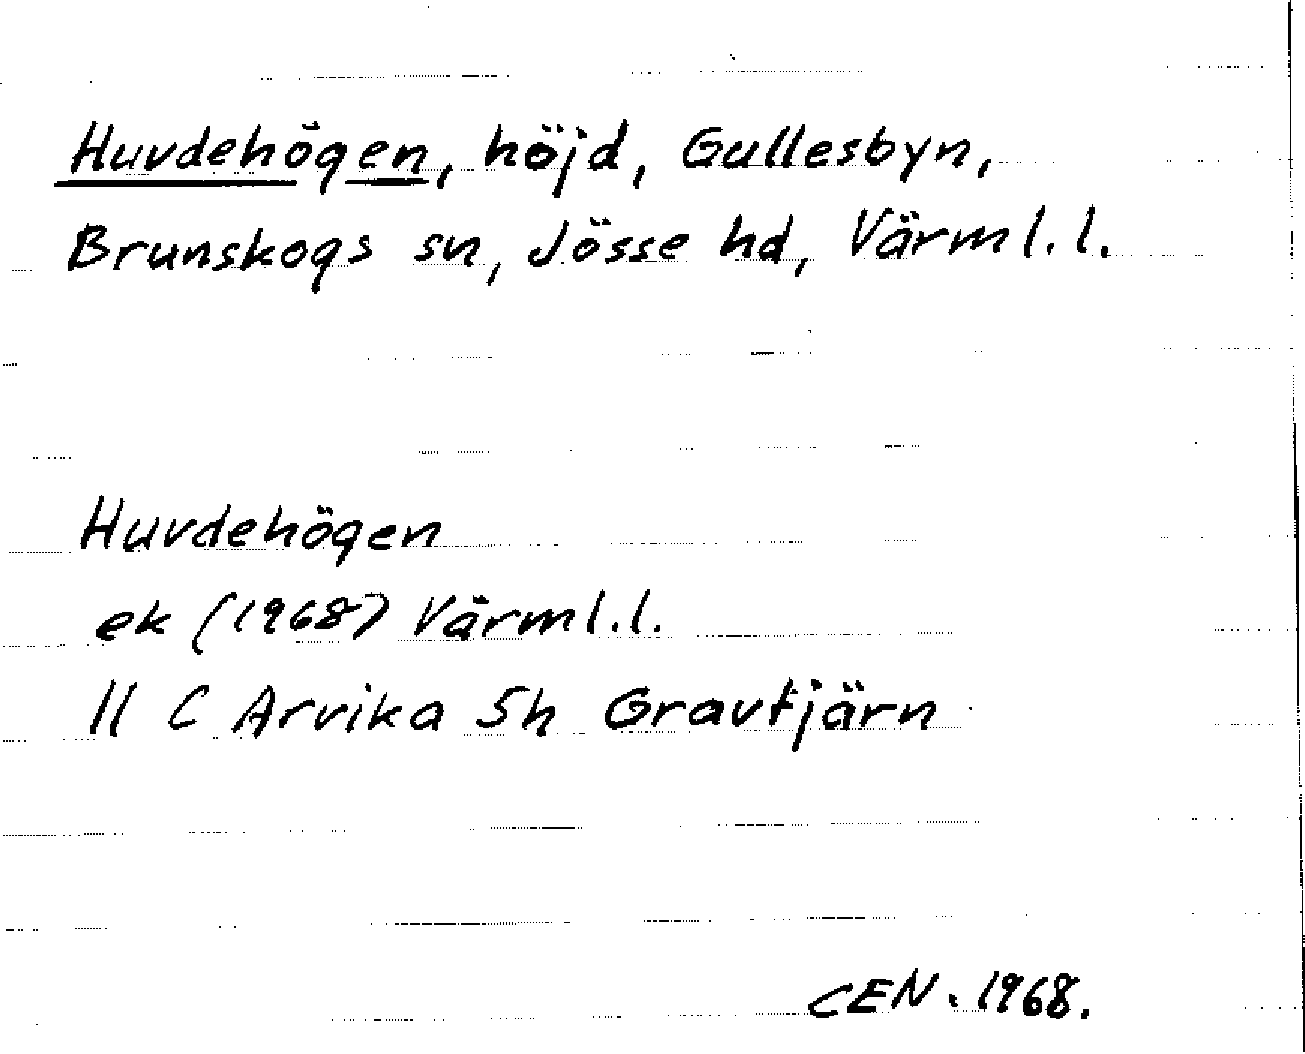 Huvdehögen, höjd, Gullesbyn,
Brunskogs sn, Jösse hd, Värml. l.
Huvdehögen
ek (1968) Värml. l.
11 C Arvika Sh Gravtjärn
CEN. 1968.